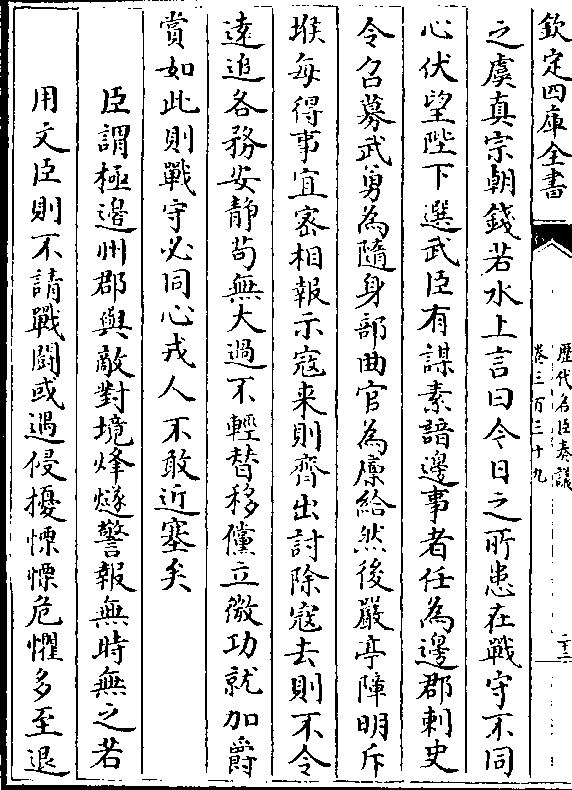 欽定四庫全書
歷代名臣奏議
卷三百三十九
之虞真宗朝錢若水上言曰今日之所患在戰守不同
心伏望陛下選武臣有謀素諳邊事者任為邊郡刺史
令召募武勇為隨身部曲官為廩給然後嚴亭障明斥
堠每得事宜宻相報示寇来則齊出討除寇去則不令
逺追各務安静苟無大過不輕替移儻立微功就加爵
賞如此則戰守必同心戎人不敢近塞矣
臣謂極邉州郡與敵對境烽燧警報無時無之若
用文臣則不諳戰鬭或遇侵擾慄慄危懼多至退